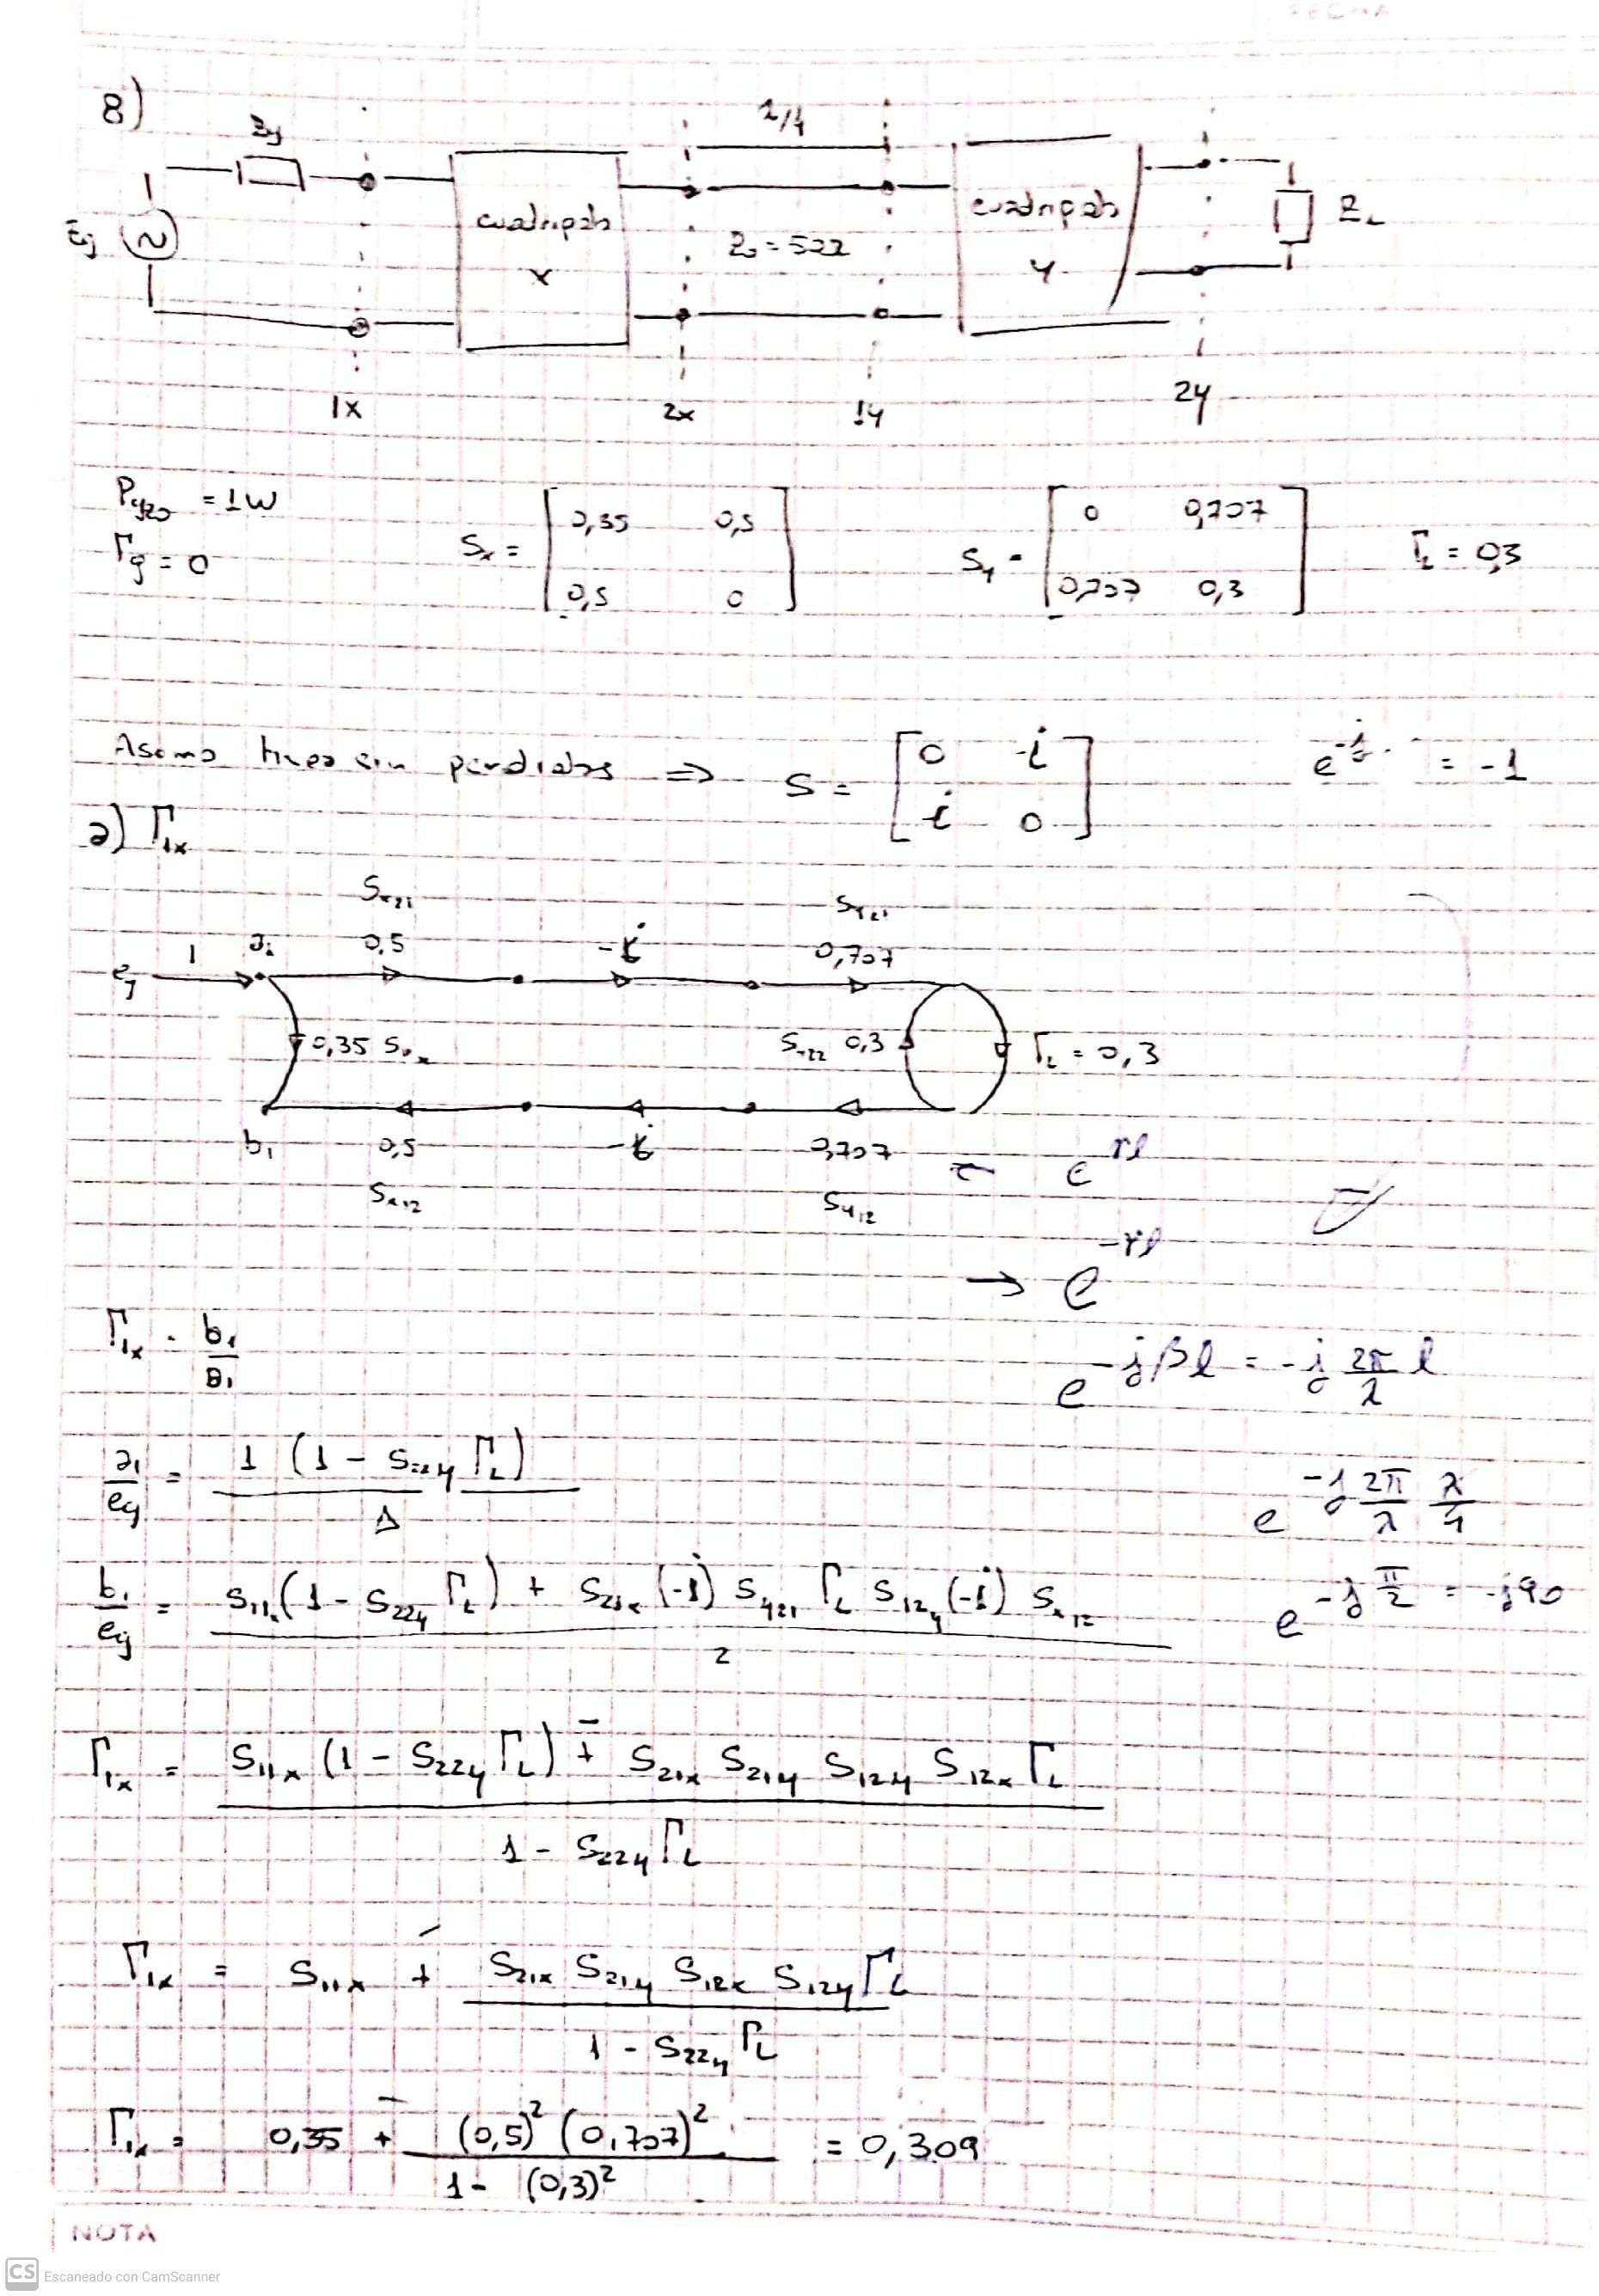 FECHA
8)
Zg
λ/4
Eg
cuadripolo
x
Z₀ = 50Ω
cuadripolo
y
Z_L
1x
2x
1y
2y
P_gZ0 = 1W
Γg = 0
Sx = [ 0,35 0,5
0,5 0 ]
Sy = [ 0 0,707
0,707 0,3 ]
Γ_L = 0,3
Asumo linea sin perdidas ⇒ S = [ 0 -j
-j 0 ]
= -1
a) Γ1x
Sx21
Sy21
eg 1 a1 0,5 -j 0,707
0,35 S11x
Sy22 0,3
Γ_L = 0,3
b1 0,5 -j 0,707
Sx12
Sy12
← e^γl
→ e^-γl
Γ1x = b1/a1
e^-jβl = -j 2π/λ l
a1/eg = 1 (1 - S22y Γ_L) / Δ
e^-j 2π/λ λ/4
b1/eg = S11x (1 - S22y Γ_L) + S21x (-j) Sy21 Γ_L S12y (-j) Sx12 / 2
e^-j π/2 = -j90
Γ1x = S11x (1 - S22y Γ_L) ∓ S21x S21y S12y S12x Γ_L / 1 - S22y Γ_L
Γ1x = S11x ∓ S21x S21y S12x S12y Γ_L / 1 - S22y Γ_L
Γ1x = 0,35 ∓ (0,5)² (0,707)² / 1 - (0,3)² = 0,309
NOTA
CS Escaneado con CamScanner